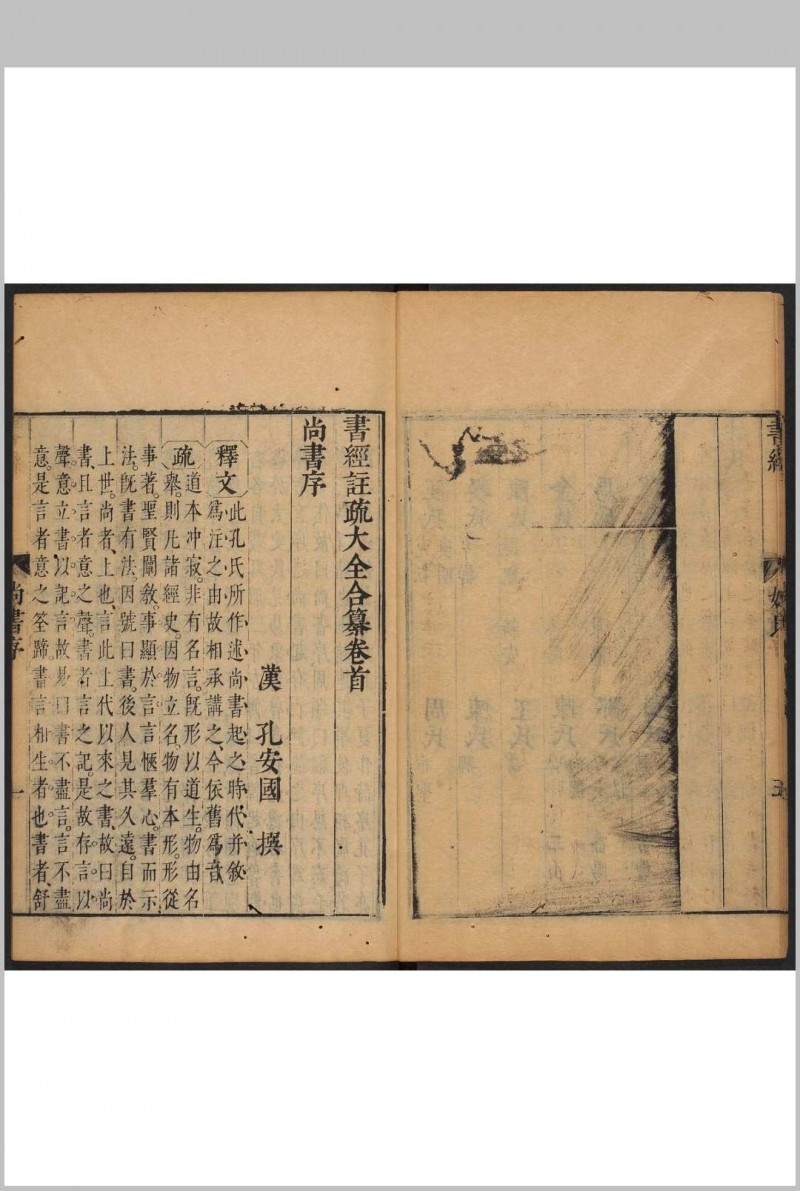 書經
姓氏
五
書經註疏大全合纂卷首
尚書序
漢 孔安國 撰
釋文 此孔氏所作述尚書起之時代并敘
爲注之由故相承講之今依舊爲音
疏 道本冲寂非有名言旣形以道生物由名
舉則凡諸經史因物立名物有本形形從
事著聖賢闡敎事顯於言言愜羣心書而示
法旣書有法因號曰書後人見其久遠自於
上世尚者上也言此上代以來之書故曰尚
書且言者意之聲書者言之記是故存言以
聲意立書以記言故易曰書不盡言言不盡
意是言者意之筌蹄書言相生者也書者舒
尚書序
一